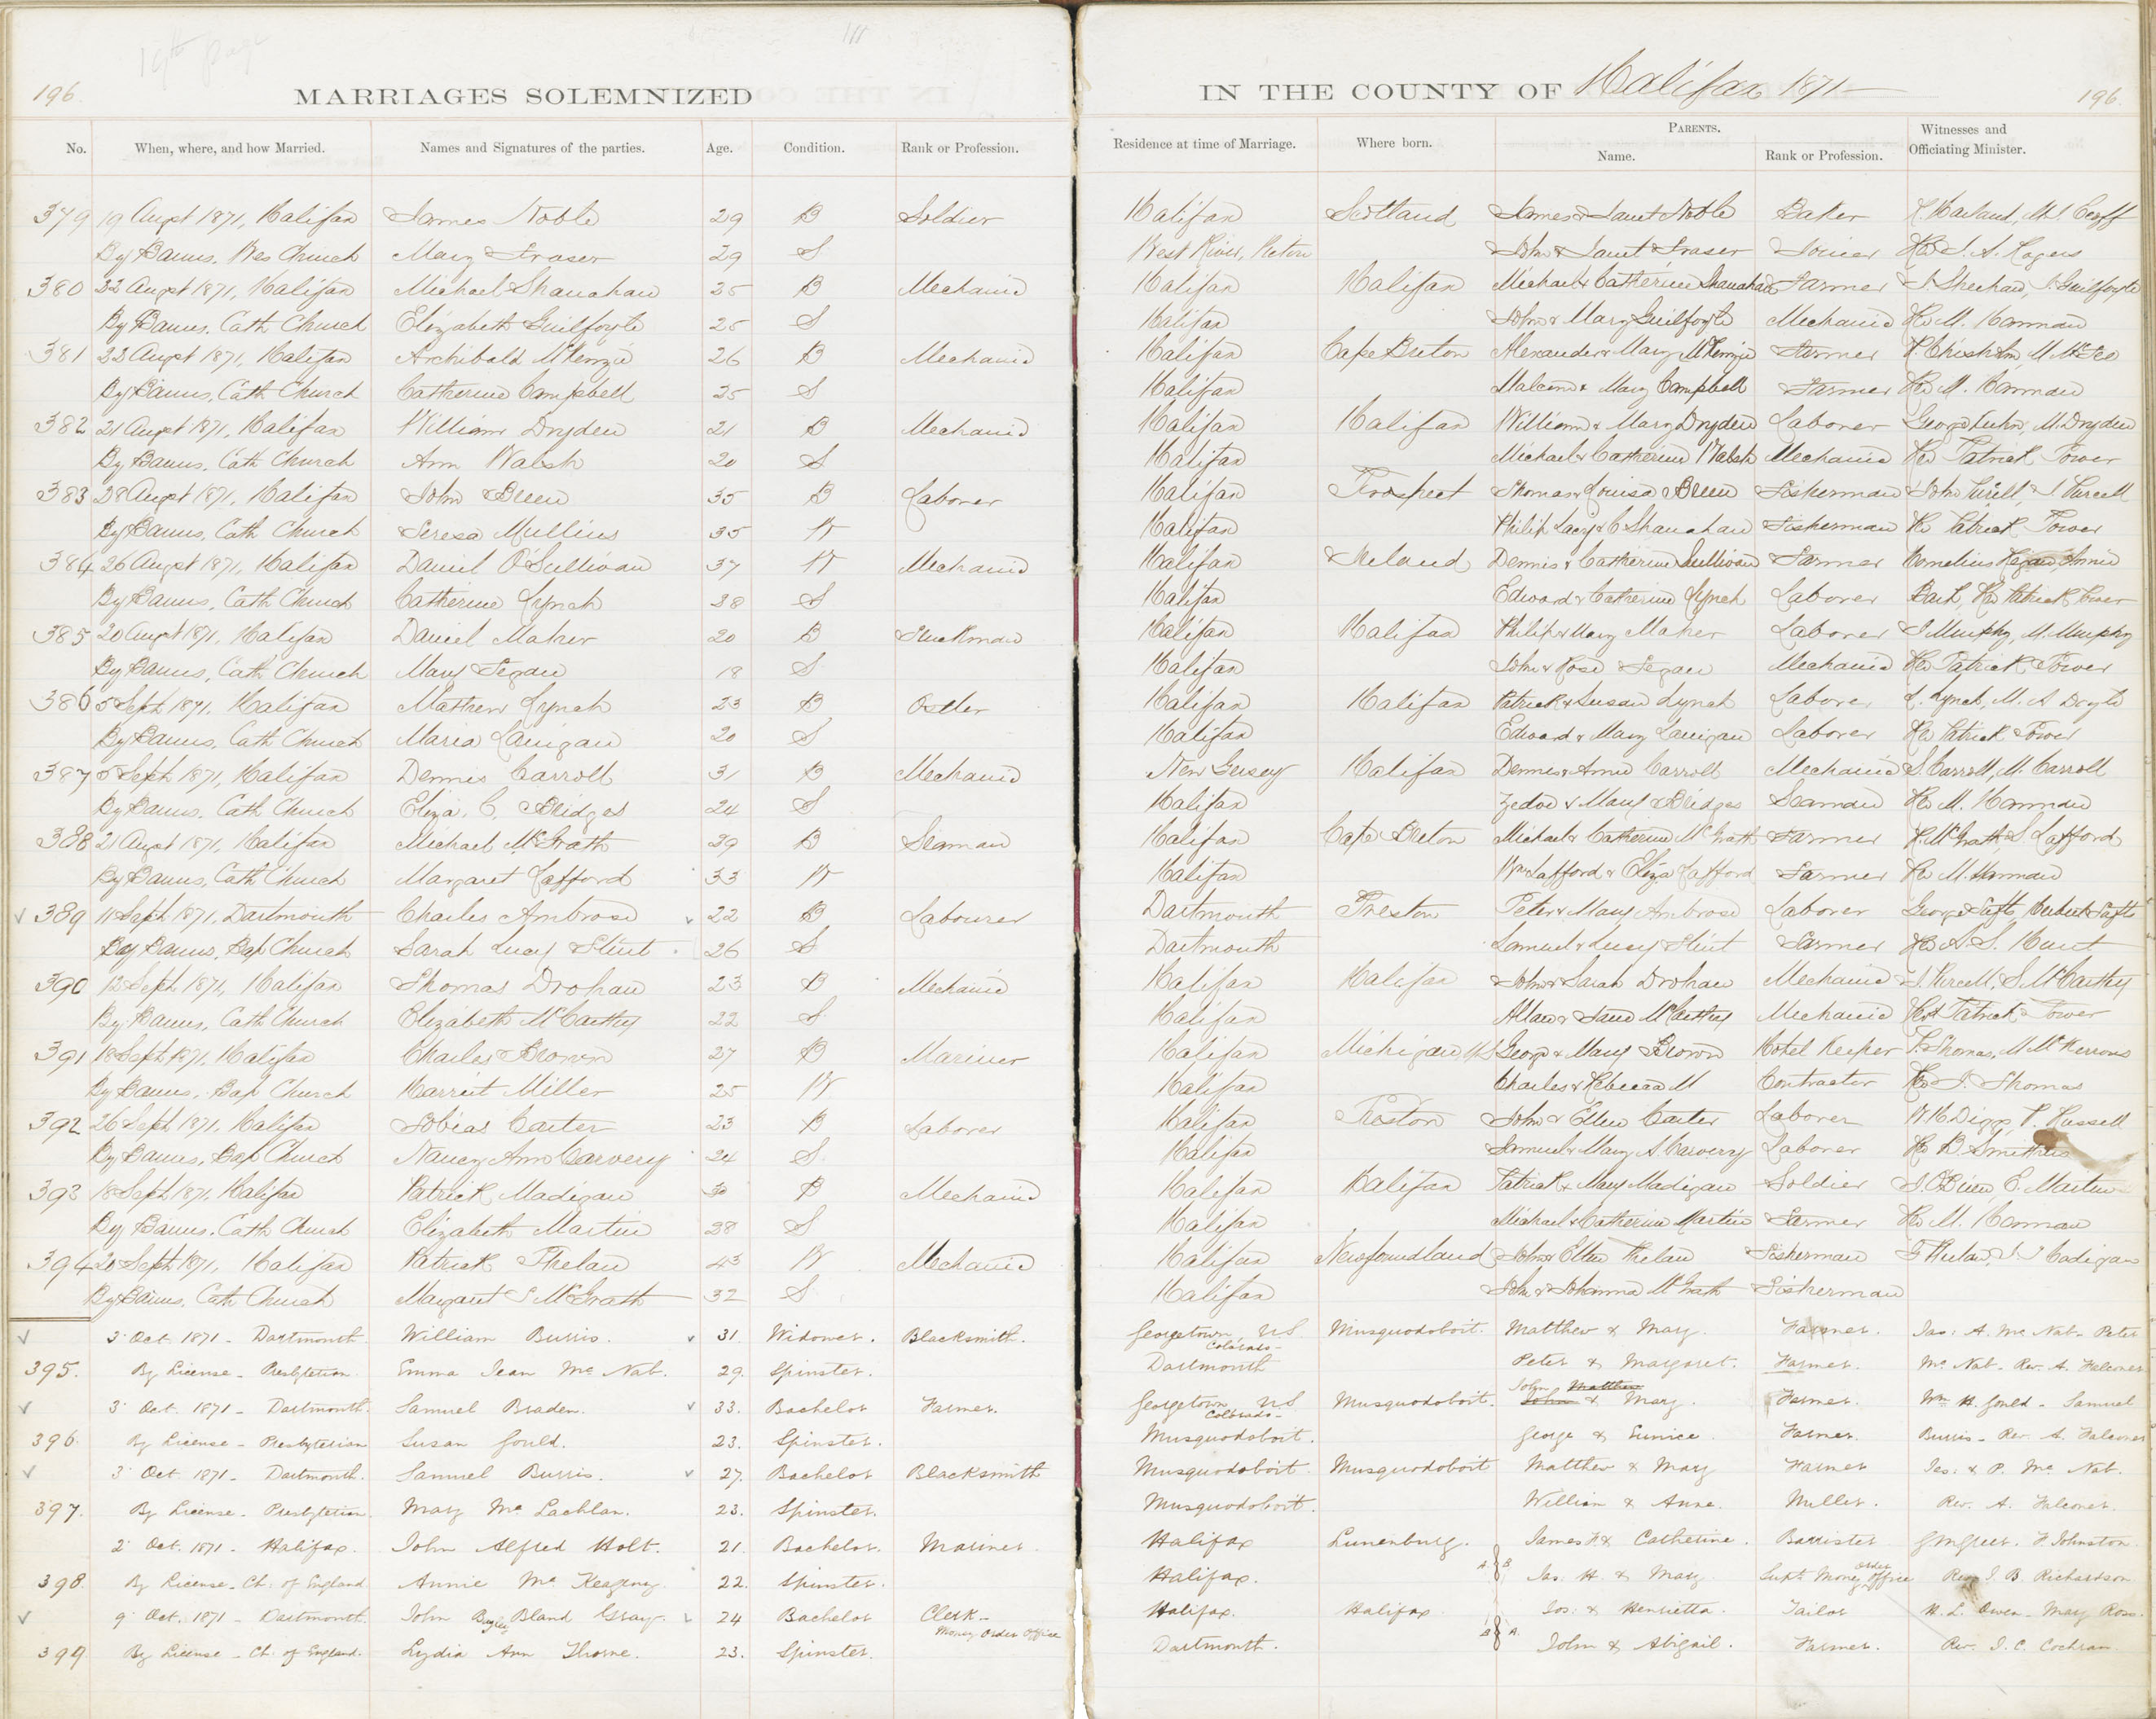 19th page
111
196 MARRIAGES SOLEMNIZED IN THE COUNTY OF Halifax 1871 196
No. When, where, and how Married. Names and Signatures of the parties. Age. Condition. Rank or Profession. Residence at time of Marriage. Where born. PARENTS. Name. Rank or Profession. Witnesses and Officiating Minister.
379 19 Augst 1871, Halifax James Noble 29 B Soldier Halifax Scotland James & Janet Noble Baker
By Banns. Wes Church Mary Fraser 29 S West River, Pictou John & Janet Fraser Joiner Rev
380 22 Augst 1871, Halifax Michael Shanahan 25 B Mechanic Halifax Halifax Michael & Catherine Shanahan Farmer J. Sheehan, J. Guilfoyle
By Banns. Cath Church Elizabeth Guilfoyle 25 S Halifax John & Mary Guilfoyle Mechanic Rev M. Hannan
381 22 Augst 1871, Halifax Archibald McKenzie 26 B Mechanic Halifax Cape Breton Alexander & Mary McKenzie Farmer
By Banns, Cath Church Catherine Campbell 25 S Halifax Malcom & Mary Campbell Farmer Rev M. Hannan
382 21 Augst 1871, Halifax William Dryden 21 B Mechanic Halifax Halifax William & Mary Dryden Laborer George M. Dryden
By Banns. Cath Church Ann Walsh 20 S Halifax Michael & Catherine Walsh Mechanic Rev Patrick Power
383 28 Augst 1871, Halifax John Breen 35 B Laborer Halifax Prospect Thomas & Louisa Breen Fisherman John
By Banns, Cath Church Teresa Mullins 35 W Halifax Philip Lacy & C Shanahan Fisherman Rv Patrick Power
384 26 Augst 1871, Halifax Daniel O'Sullivan 37 W Mechanic Halifax Ireland Dennis & Catherine Sullivan Farmer Cornelius Regan, Annie
By Banns, Cath Church Catherine Lynch 28 S Halifax Edward & Catherine Lynch Laborer Rev Patrick Power
385 20 Augst 1871, Halifax Daniel Maher 20 B Truckman Halifax Halifax Philip & Mary Maher Laborer J Murphy, M. Murphy
By Banns, Cath Church Mary Fegan 18 S Halifax John & Rose Fegan Mechanic Rev Patrick Power
386 5 Sept 1871, Halifax Mathew Lynch 23 B Ostler Halifax Halifax Patrick & Susan Lynch Laborer L. Lynch, M. A Doyle
By Banns, Cath Church Maria Lanigan 20 S Halifax Edward & Mary Lanigan Laborer Rev Patrick Power
387 5 Sept 1871, Halifax Dennis Carroll 31 B Mechanic New Jersey Halifax Dennis & Annie Carroll Mechanic S. Carroll, M. Carroll
By Banns. Cath Church Eliza. C. Bridges 24 S Halifax & Mary Bridges Seaman Rev M. Hannan
388 21 Augst 1871, Halifax Michael McGrath 29 B Seaman Halifax Cape Breton Michael & Catherine McGrath Farmer P. McGrath, S. Lafford
By Banns, Cath Church Margaret Lafford 33 W Halifax Wm Lafford & Eliza Lafford Farmer Rev M. Hannan
389 11 Sept 1871, Dartmouth Charles Ambrose 22 B Labourer Dartmouth Preston Peter & Mary Ambrose Laborer
By Banns, Bap Church Sarah Lucy Flint 26 S Dartmouth Samuel & Lucy Flint Farmer Rev A. S. Hunt
390 12 Sept 1871, Halifax Thomas Drohan 23 B Mechanic Halifax Halifax John & Sarah Drohan Mechanic J. Purcell, S. McCarthy
By Banns, Cath Church Elizabeth McCarthy 22 S Halifax Allan & Jane McCarthy Mechanic Rev Patrick Power
391 18 Sept 1871, Halifax Charles Brown 27 B Mariner Halifax Michigan, US George & Mary Brown Hotel Keeper S. Thomas, M McKerrow
By Banns, Bap Church Harriet Miller 25 W Halifax Charles & Rebecca M Contractor Rev J. Thomas
392 26 Sept 1871, Halifax Tobias Carter 23 B Laborer Halifax Preston John & Ellen Carter Laborer W H Diggs, P. Russell
By Banns, Bap Church Nancy Ann Carvery 24 S Halifax Samuel & Mary A. Carvery Laborer Rev B. Smithers
393 18 Sept 1871, Halifax Patrick Madigan 30 B Mechanic Halifax Halifax Patrick & Mary Madigan Soldier J. O'Brien, E. Martin
By Banns. Cath Church Elizabeth Martin 28 S Halifax Michael & Catherine Martin Farmer Rev M. Hannan
394 20 Sept 1871, Halifax Patrick Phelan 43 W Mechanic Halifax Newfoundland John & Ellen Phelan Fisherman Madigan
By Banns, Cath Church Margaret S McGrath 32 S Halifax John & Johanna McGrath Fisherman
3 Oct. 1871 - Dartmouth. William Burris. 31. Widower. Blacksmith. Georgetown, US Colorado- Musquodoboit. Matthew & Mary. Farmer. Jas: A. Mc Nab - Peter
395. By License - Presbyterian Emma Jean Mc Nab. 29. Spinster. Dartmouth Peter & Margaret. Farmer. Mc Nab - Rev. A. Falconer
3 Oct. 1871 - Dartmouth. Samuel Braden. 33. Bachelor Farmer. Georgetown, US Colorado- Musquodoboit. John Matthew John & Mary. Farmer. Wm H. Gould - Samuel
396. By License - Presbyterian Susan Gould. 23. Spinster. Musquodoboit. George & Eunice. Farmer. Burris - Rev. A. Falconer
3 Oct 1871 - Dartmouth. Samuel Burris. 27. Bachelor Blacksmith Musquodoboit. Musquodoboit Matthew & Mary Farmer Jas: & P. Mc Nab.
397. By License - Presbyterian Mary Mc Lachlan. 23. Spinster. Musquodoboit. William & Anne. Miller. Rev. A. Falconer.
2 Oct. 1871 - Halifax. John Alfred Holt. 21. Bachelor. Mariner. Halifax Lunenburg. James F. & Catherine. Barrister F. Johnston.
398. By License - Ch: of England. Annie Mc Keageney. 22. Spinster. Halifax. A B Jas. H. & Mary Supt. Money Order Office Rev. J. B. Richardson
9 Oct. 1871 - Dartmouth. John Bland Gray. 24 Bachelor Clerk - Money Order Office Halifax. Halifax Jos: & Henrietta. Tailor H. L. Owen - Mary Ross
399. By License - Ch: of England. Lydia Ann Thorne. 23. Spinster. Dartmouth. B A. John & Abigail. Farmer. Rev. J. C. Cochran